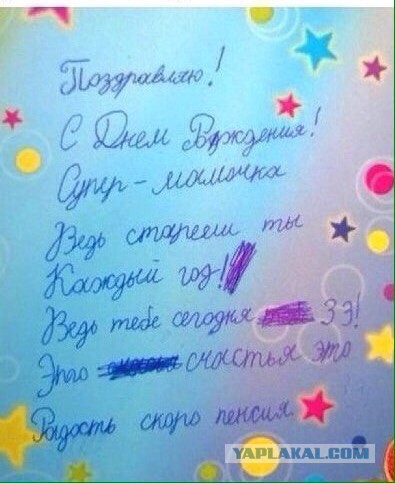 Поздравляю!
С Днем Рождения!
Супер-мамочка
Ведь стареешь ты
Каждый год!
Ведь тебе сегодня 33!
Это счастья это
Радость скоро пенсия
YAPLAKAL.COM